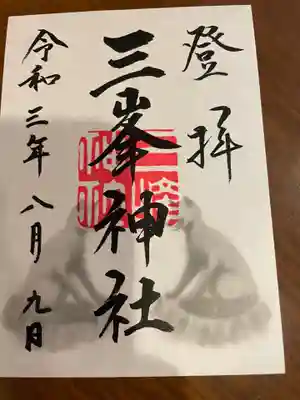 登拝
三峯神社
令和三年八月九日